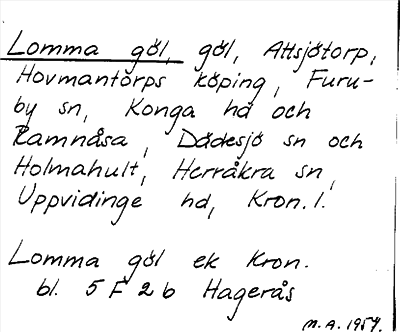 Lomma göl, göl, Attsjötorp,
Hovmantorps köping, Furu-
by sn, Konga hd och
Ramnåsa, Dädesjö sn och
Holmahult, Herråkra sn,
Uppvidinge hd, Kron. l.
Lomma göl ek Kron.
bl. 5 F 2 b Hagerås
M.A. 1957.